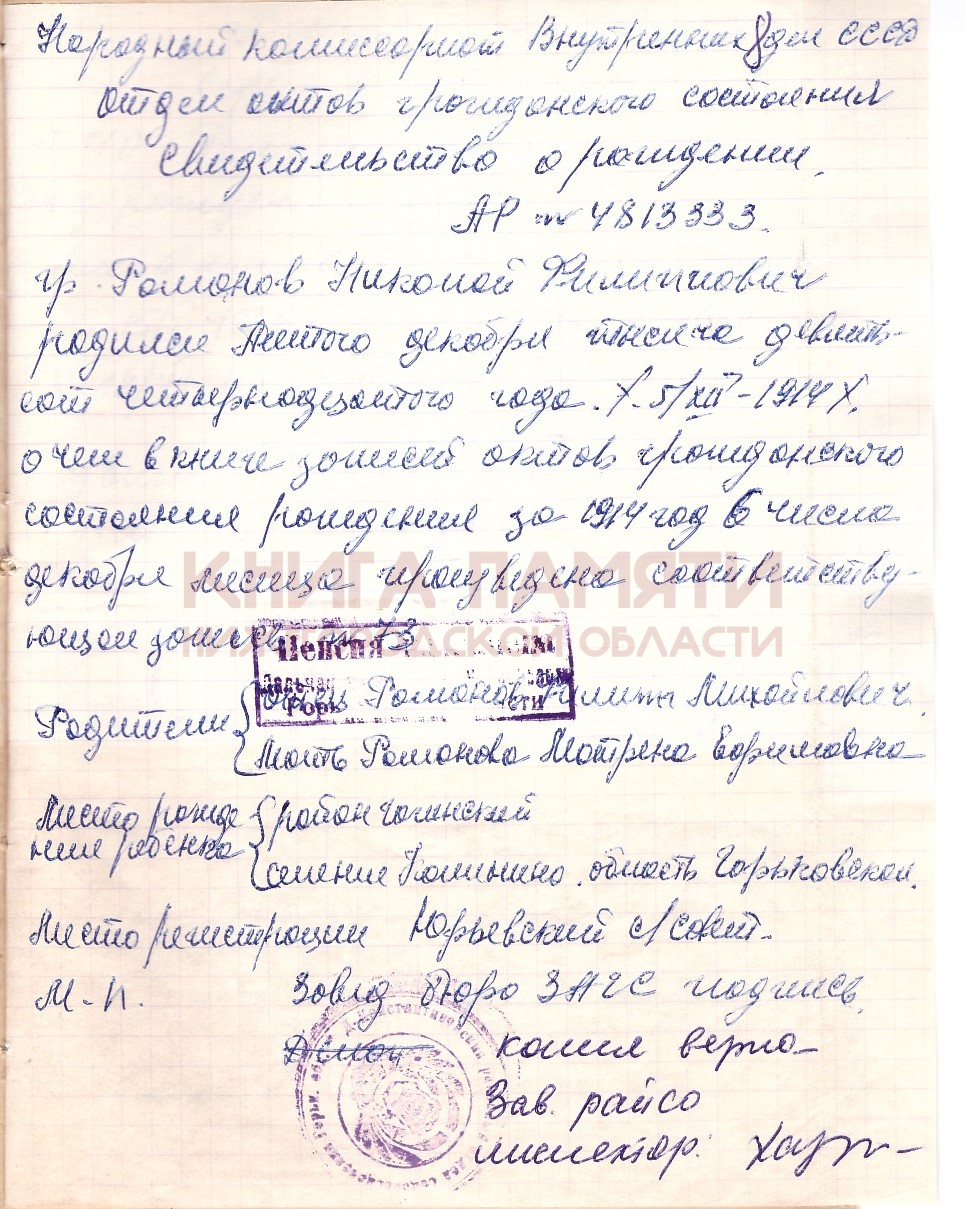 Народный комиссариат Внутренних дел СССР
отдел актов гражданского состояния
Свидетельство о рождении.
АР № 4813333.
гр. Романов Николай Филиппович
родился Пятого декабря тысяча девять-
сот четырнадцатого года. Х. 5/XII - 1914 Х.
о чем в книге записей актов гражданского
состояния рождения за 1914 год 6 числа
декабря месяца произведена соответству-
ющая запись № 73
КНИГА ПАМЯТИ
НИЖЕГОРОДСКОЙ ОБЛАСТИ
Пенсия
Родители { отец Романов Филипп Михайлович.
Мать Романова Матрена Ефимовна
Место рожде- { район
ния ребенка { селение Калинино. область Горьковская.
Место регистрации Юрьевский с/совет.
М-П. Завед бюро ЗАГС подпись
копия верна
Зав. райсо
инспектор: